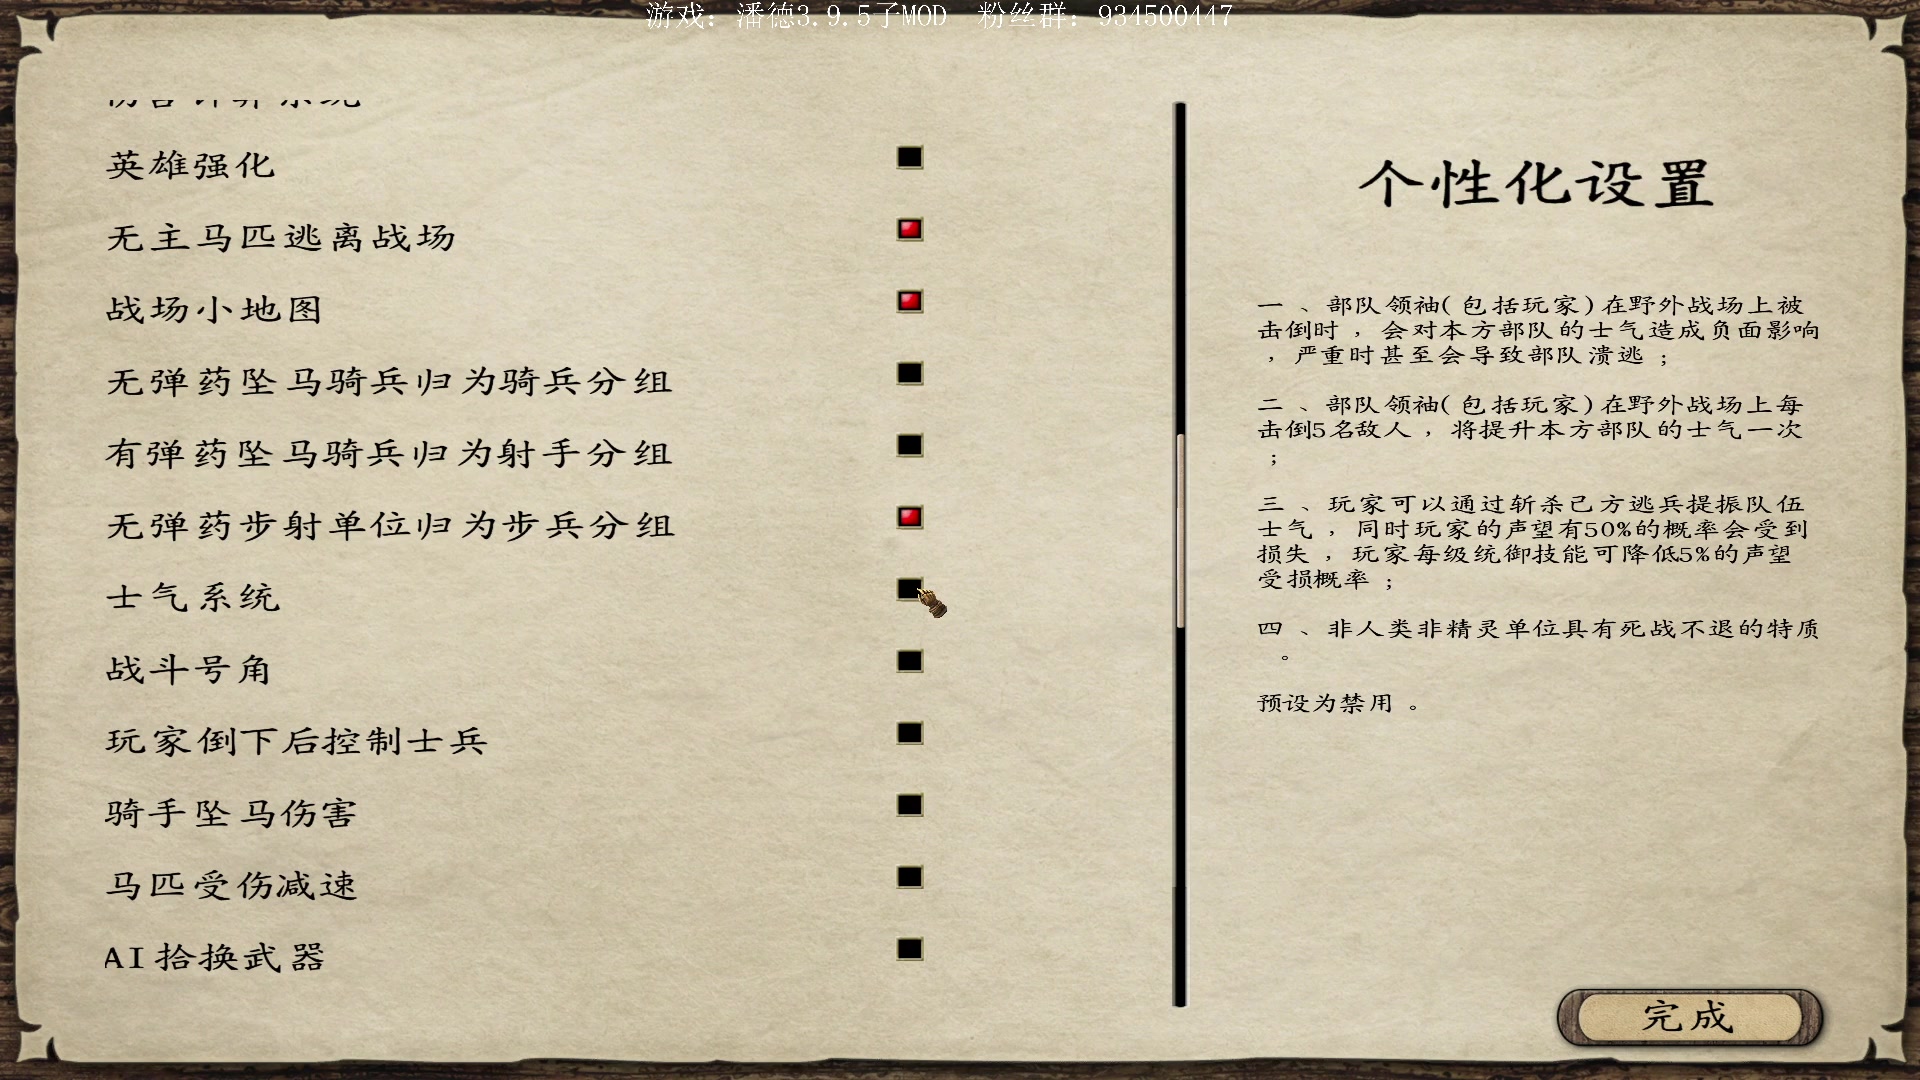 游戏：潘德3.9.5子MOD 粉丝群：934500447
伤害计算系统
英雄强化
无主马匹逃离战场
战场小地图
无弹药坠马骑兵归为骑兵分组
有弹药坠马骑兵归为射手分组
无弹药步射单位归为步兵分组
士气系统
战斗号角
玩家倒下后控制士兵
骑手坠马伤害
马匹受伤减速
AI拾换武器
个性化设置
一、部队领袖(包括玩家)在野外战场上被
击倒时，会对本方部队的士气造成负面影响
，严重时甚至会导致部队溃逃；
二、部队领袖(包括玩家)在野外战场上每
击倒5名敌人，将提升本方部队的士气一次
；
三、玩家可以通过斩杀己方逃兵提振队伍
士气，同时玩家的声望有50%的概率会受到
损失，玩家每级统御技能可降低5%的声望
受损概率；
四、非人类非精灵单位具有死战不退的特质
。
预设为禁用。
完成